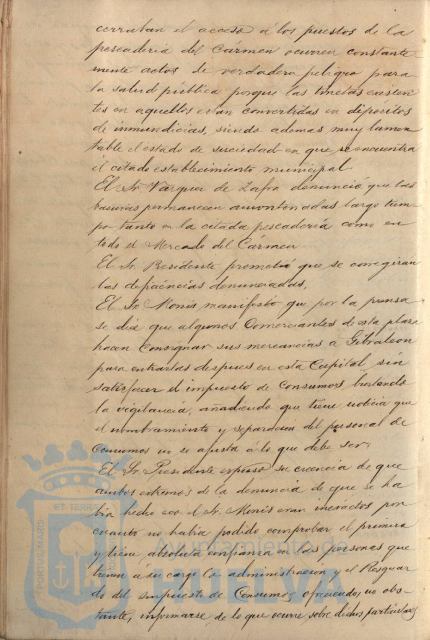 cerraban el acceso á los puestos de la
pescaderia del Carmen ocurren constante
mente actos de verdadero peligro para
la salud pública porque las tinetas existen
tes en aquellos eran convertidas en depósitos
de inmundicias, siendo ademas muy lamen
table el estado de suciedad en que se encuentra
el citado establecimiento municipal.
El Sr. Vázquez de Zafra denunció que las
basuras permanecen amontonadas largo tiem
po tanto en la citada pescaderia como en
todo el Mercado del Cármen
El Sr. Presidente prometió que se corregiran
las deficiencias denunciadas.
El Sr. Monis manifestó que por la prensa
se dice que algunos Comerciantes de esta plaza
hacen consignar sus mercancias á Gibraleon
para entrarlas despues en esta Capital sin
satisfacer el impuesto de Consumos burlando
la vigilancia, anadiendo que tiene noticia que
el nombramiento y separacion del personal de
Consumos no se ajusta á lo que debe ser.
El Sr. Presidente expuso su creencia de que
ambos extremos de la denuncia de que se ha
bia hecho eco el Sr. Monis eran inexactos por
cuanto no habia podido comprobar el primero
y tiene absoluta confianza en las personas que
tienen á su cargo la administracion y el Resguar
do del impuesto de Consumos, ofreciendo, no obs-
tante, informarse de lo que ocurre sobre dichos particulares
PORTUS MARIS
ET TERRAE
Ayuntamiento de
HUELVA